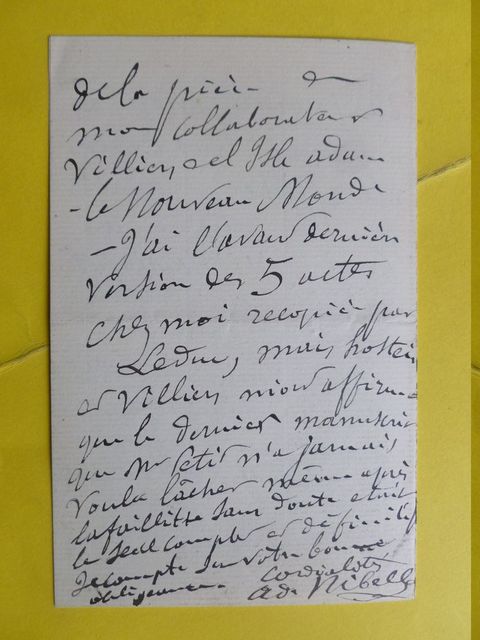 de la pièce de
mon collaborateur
Villiers de l Isle adam
- le Nouveau Monde
- J'ai l'avant dernière
version des 5 actes
chez moi recopiée par
Leduc, mais hostein
et Villiers m'ont affirmé
que le dernier manuscrit
que Mr Petit n'a jamais
voulu lâcher même après
la faillitte sans doute etait
le seul complet et définitif
Je compte sur votre bonne
obligeance. cordialités
A de Nibelle